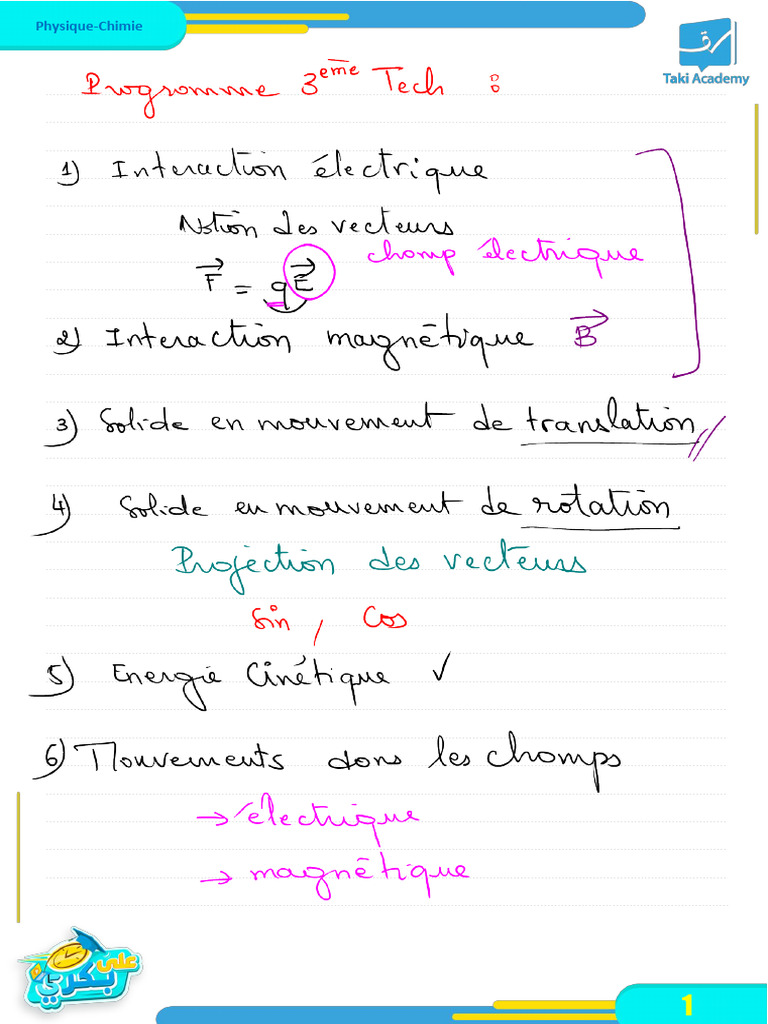 Physique-Chimie
Taki Academy
Programme 3ème Tech :
1) Interaction électrique
Notion des vecteurs
champ électrique
F = qE
2) Interaction magnétique B
3) Solide en mouvement de translation
4) Solide en mouvement de rotation
Projection des vecteurs
Sin , Cos
5) Energie Cinétique ✓
6) Mouvements dans les champs
→ électrique
→ magnétique
على بكري
1